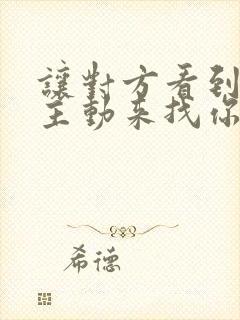 讓對方看到
主動來找你
希德